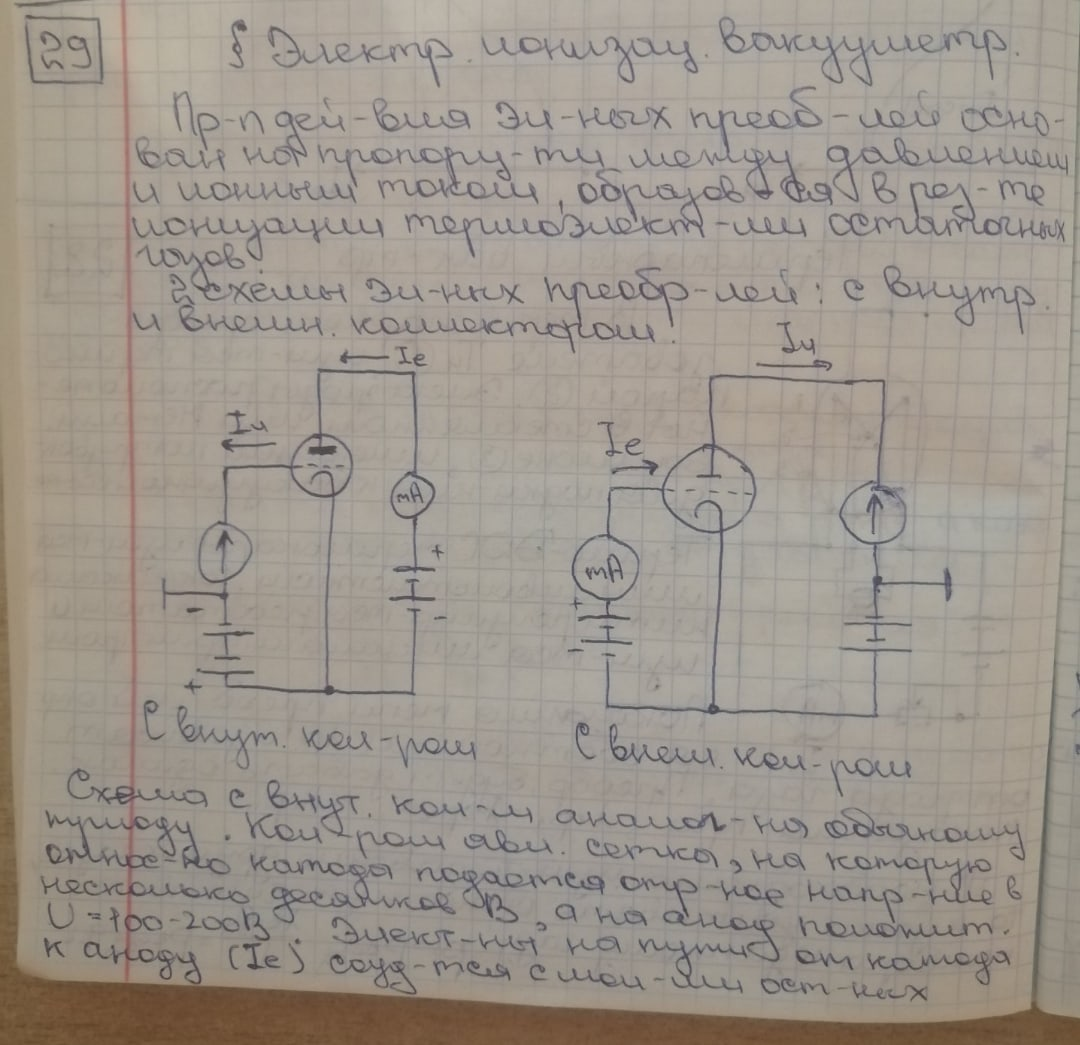 29
§ Электр. ионизац. вакууметр.
Пр-п дей-вия Эл-ных преоб-лей осно-
ван на пропорц-ти между давлением
и ионным током, образов-ся в рез-те
ионизации термоэлект-ми остаточных
газов.
2 схемы эл-ных преобр-лей: с внутр.
и внешн. коллектором.
Iе
Iи
mA
+
-
-
+
Iи
Iе
mA
+
-
С внут. кол-ром
С внеш. кол-ром
Схема с внут. кол-м аналог-на обычному
триоду. Кол-ром явл. сетка, на которую
относ-но катода подаётся отр-ное напр-ние в
несколько десятков В, а на анод положит.
U = 100-200В. Элект-ны, на пути от катода
к аноду (Iе) соуд-тся с мол-ми ост-ных